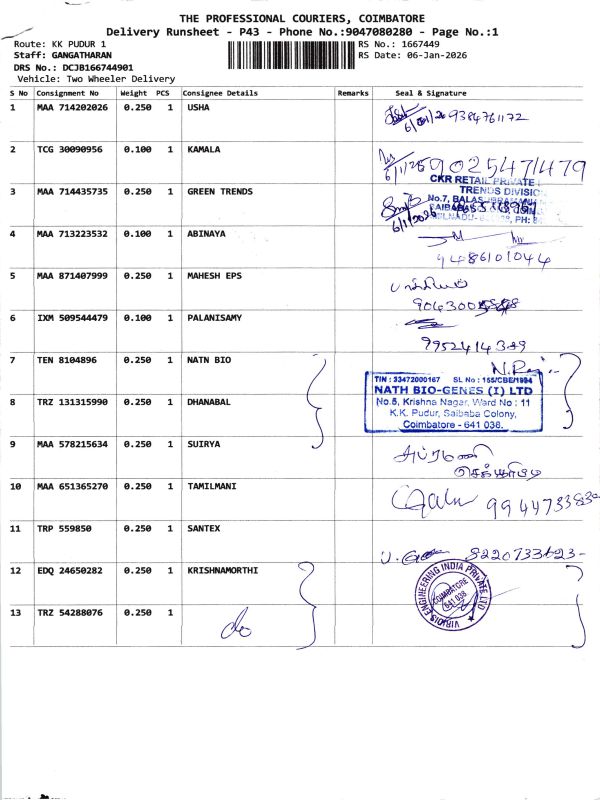 THE PROFESSIONAL COURIERS, COIMBATORE
Delivery Runsheet - P43 - Phone No.:9047080280 - Page No.:1
Route: KK PUDUR 1 RS No.: 1667449
Staff: GANGATHARAN RS Date: 06-Jan-2026
DRS No.: DCJB166744901
Vehicle: Two Wheeler Delivery
S No Consignment No Weight PCS Consignee Details Remarks Seal & Signature
1 MAA 714202026 0.250 1 USHA
9384761172
2 TCG 30090956 0.100 1 KAMALA
9025471479
CKR RETAIL PRIVATE
TRENDS DIVISION
3 MAA 714435735 0.250 1 GREEN TRENDS
No.7,
6/1/2026
4 MAA 713223532 0.100 1 ABINAYA
9486101044
5 MAA 871407999 0.250 1 MAHESH EPS
6 IXM 509544479 0.100 1 PALANISAMY
9952414389
7 TEN 8104896 0.250 1 NATN BIO
TIN : 33472000167 SL No : 155/CBE/1994
NATH BIO-GENES (I) LTD
8 TRZ 131315990 0.250 1 DHANABAL
No.5, Krishna Nagar, Ward No : 11
K.K. Pudur, Saibaba Colony,
Coimbatore - 641 038.
9 MAA 578215634 0.250 1 SUIRYA
10 MAA 651365270 0.250 1 TAMILMANI
11 TRP 559850 0.250 1 SANTEX
8220733623-
12 EDQ 24650282 0.250 1 KRISHNAMORTHI
ENGINEERING INDIA PRIVATE LTD
COIMBATORE
641 038
13 TRZ 54288076 0.250 1
do